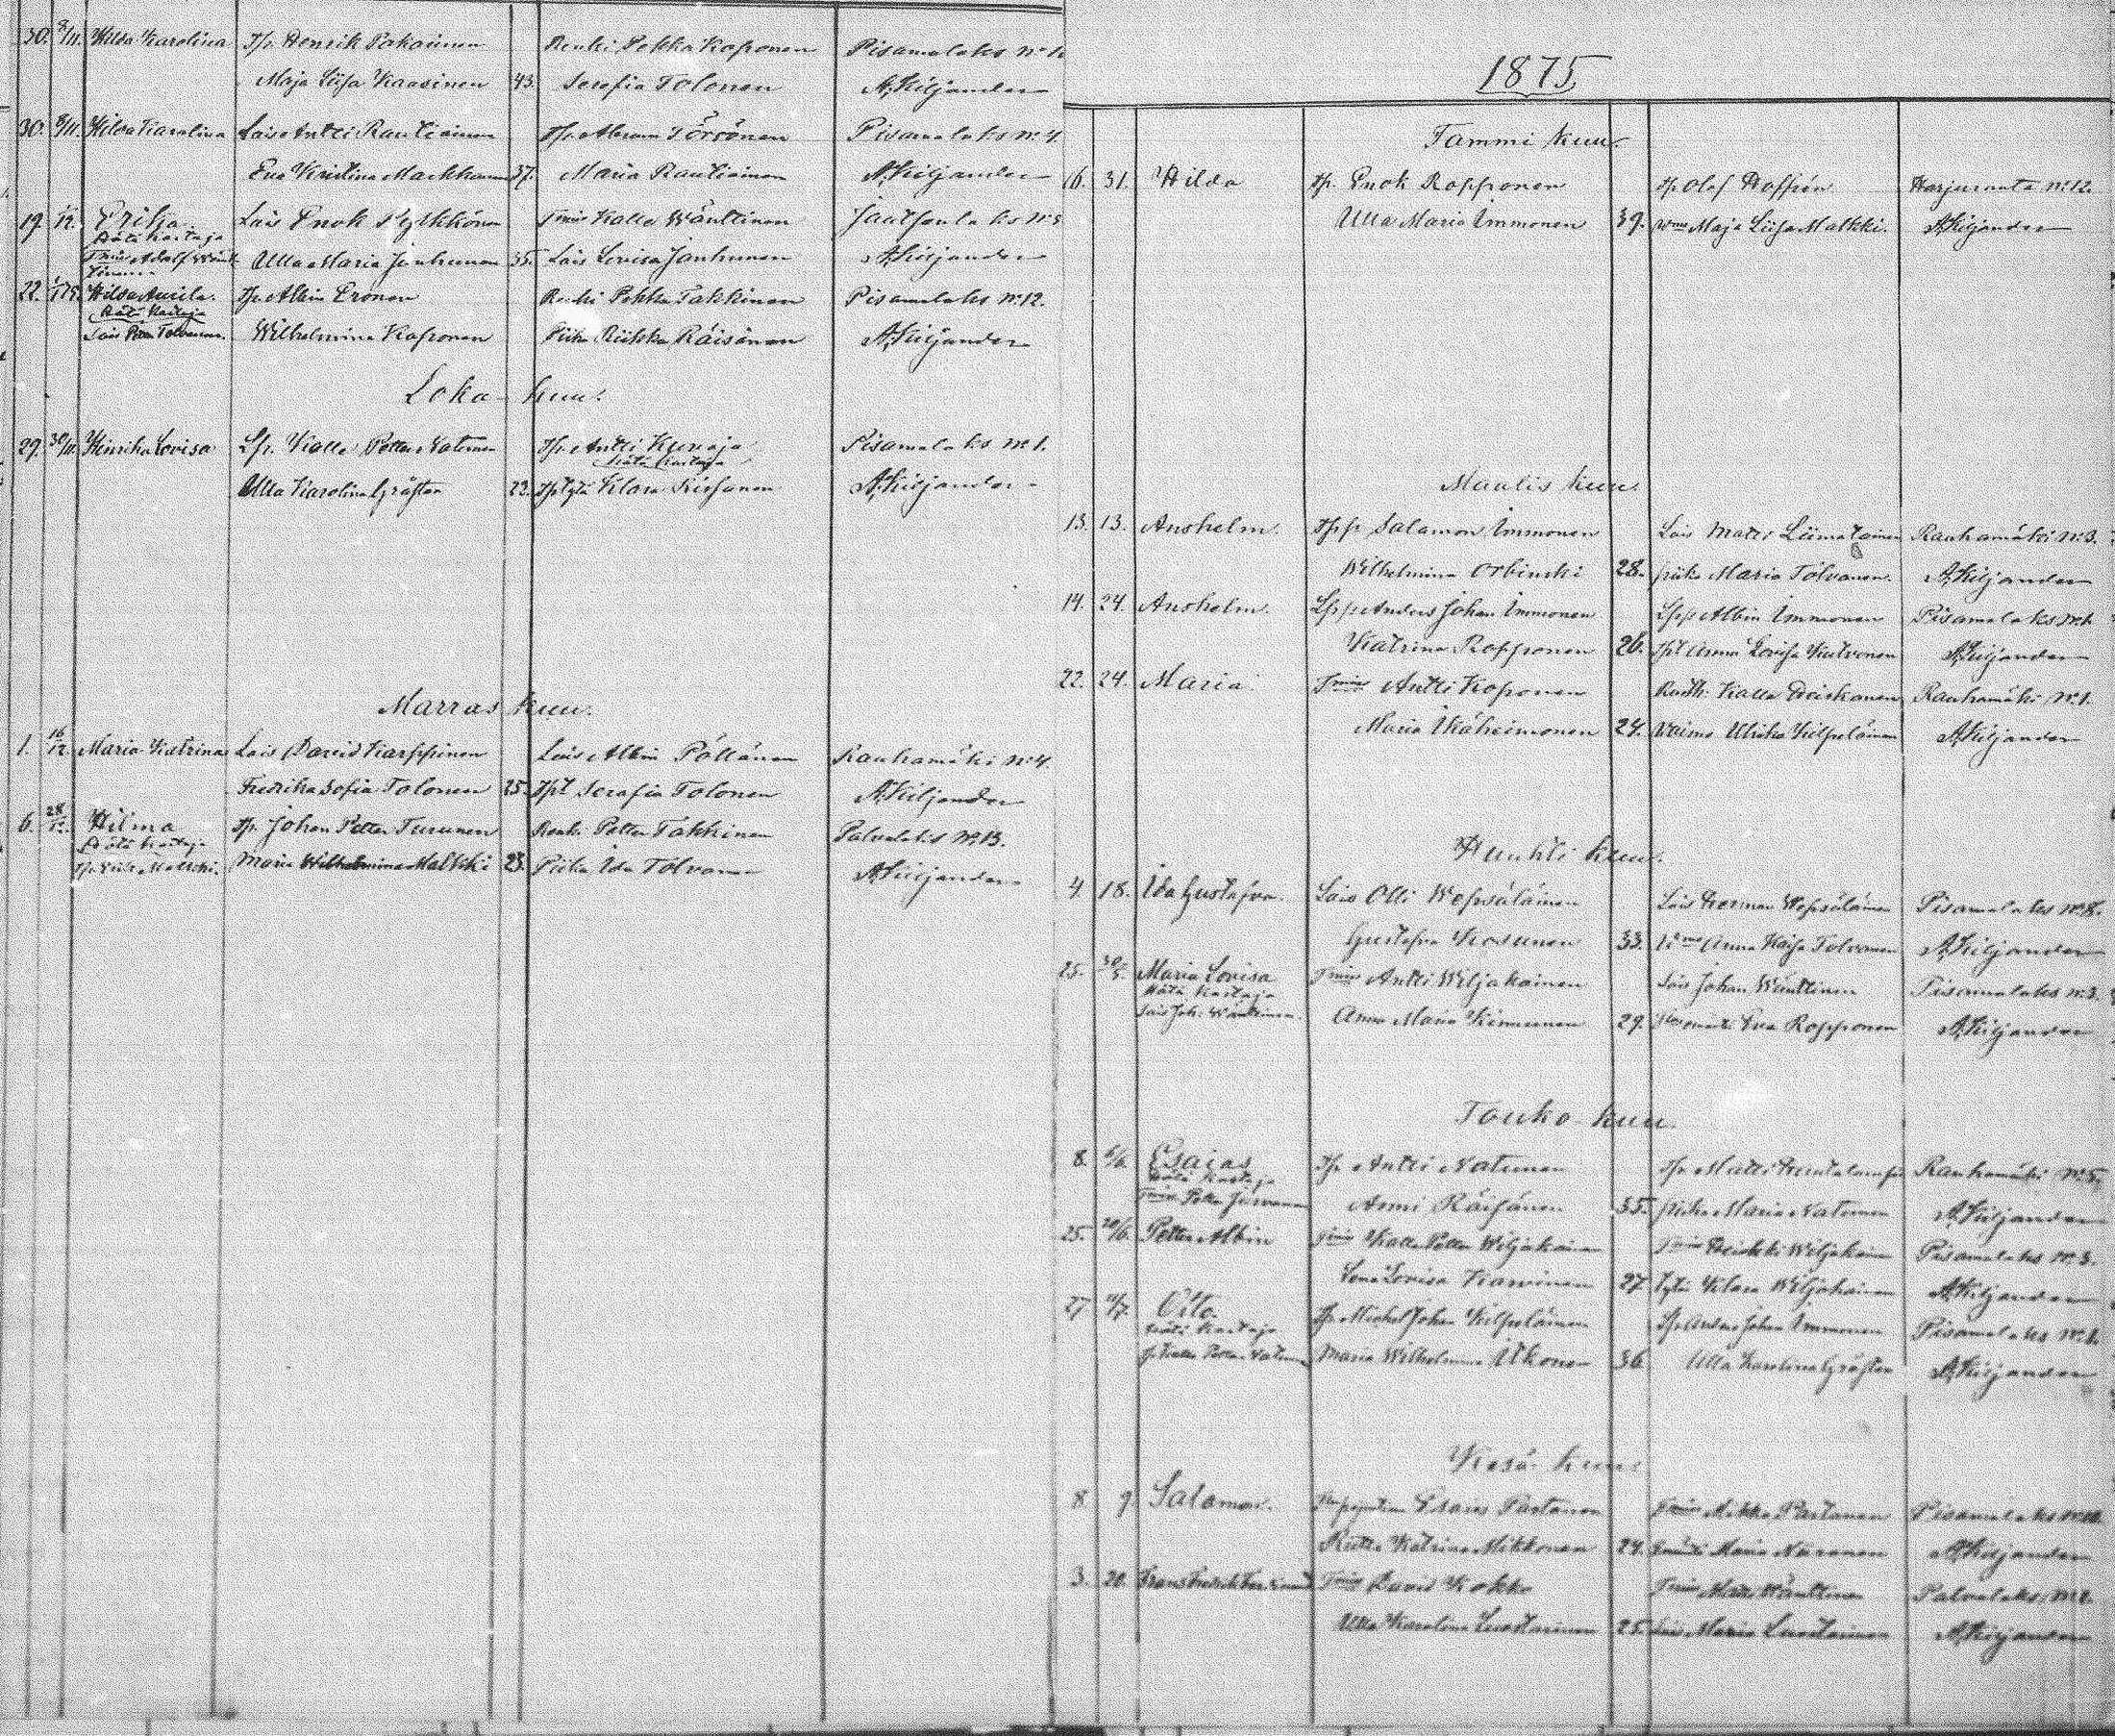 30. 8/11. Hilda Karolina Tp. Henrik Pakarinen Renki Pekka Koponen Pisamalaks No 1
Maja Liisa Kaasinen 43. Serefia Tolonen A. Kiljander
30. 8/11. Hilda Karolina Lois Antti Rautiainen Tp. Abram Törrönen Pisamalaks No 4.
Eva Kristina Markkanen 37. Maria Rautiainen A. Kiljander
19. 1/12. Erika Lois Enok Pylkkönen Kalle Wänttinen
Hätä kastaja
Adolf Wänt- Ulla Maria Janhunen 35. Lois Lovisa Janhunen A. Kiljander
tinen
22. Hilda Tp. Albin Eronen Renki Pekka Takkinen Pisamalaks No 12.
Hätä Kastaja
Lois Petter Tolvanen. Wilhelmina Koponen Piika Riikka Räisänen A. Kiljander
Loka-kuu.
29. 30/11. Henrika Lovisa Lp. Kalle Petter Natunen Tp. Antti Pisamalaks No 1.
Hätä Kastaja
Ulla Karolina Grästen 22. Klara A. Kiljander
Marras kuu.
1. 16/12. Maria Katrina Lois David Karppinen Lois Albin Pöllänen Rauhamäki No 4.
Fredrika Sofia Tolonen 25. Tpt Serafia Tolonen A. Kiljander
6. 28/12. Hilma Tp. Johan Petter Turunen Renki Petter Takkinen Palvalaks No 13.
Hätä Kastaja
Malkki. Maria Wilhelmina Malkki 23. Piika Ida Tolvanen A. Kiljander
1875
Tammi kuu.
16. 31. Hilda Tp. Enok Ropponen Tp Olof Hoffrén Harjuranta No 12.
Ulla Maria Immonen 39. Maja Liisa Malkki. A. Kiljander
Maalis kuu.
13. 13. Anshelm. Tpp Salamon Immonen Lois Matti Liimatainen Rauhamäki No 3.
Wilhelmina Orbinski 28. piika Maria Tolvanen. A. Kiljander
14. 24. Anshelm. Lpp Anders Johan Immonen Lpp Albin Immonen Pisamalaks No 1.
Katrina Ropponen 26. Tpt Anna Lovisa A. Kiljander
22. 24. Maria Antti Koponen Kalle Heiskanen Rauhamäki No 1.
Maria Ikäheimonen 24. Waimo Ulrika Kilpeläinen A. Kiljander
Huuhti kuu.
4. 18. Ida Gustafva. Lois Olli Wepsäläinen Lois Herman Wepsäläinen Pisamalaks No 8.
Gustafva Kosunen 33. Anna Kaisa Tolvanen A. Kiljander
25. 30/5. Maria Lovisa Antti Wiljakainen Lois Johan Wänttinen Pisamalaks No 3.
Hätä Kastaja
Lois Joh. Wänttinen. Anna Maria Kinnunen 29. Eva Ropponen A. Kiljander
Touko-kuu.
8. 6/6. Esaias Tp. Antti Natunen Tp. Matti Rauhamäki No 5.
Hätä Kastaja
Pekka Anni Räisänen 35. piika Maria Natunen A. Kiljander
25. 20/6. Petter Albin Kalle Petter Wiljakainen Heikki Wiljakainen Pisamalaks No 3.
Lena Lovisa Karvinen 27. Klara Wiljakainen A. Kiljander
27. Otto. Tp. Michel Johan Kilpeläinen Tp. Anders Johan Immonen Pisamalaks No 1.
Hätä Kastaja
Kalle Petter Natunen Maria Wilhelmina Itkonen 36. Ulla Karolina Grästen A. Kiljander
Kesä-kuu.
8. 9. Salamon. Esaias Partanen Mikko Partanen Pisamalaks
Riitta Katrina Mikkonen 24. Maria A. Kiljander
3. 20. David Kokko Matti Wänttinen Palvalaks
Ulla Karolina Luostarinen 25. Lois Maria Luostarinen A. Kiljander